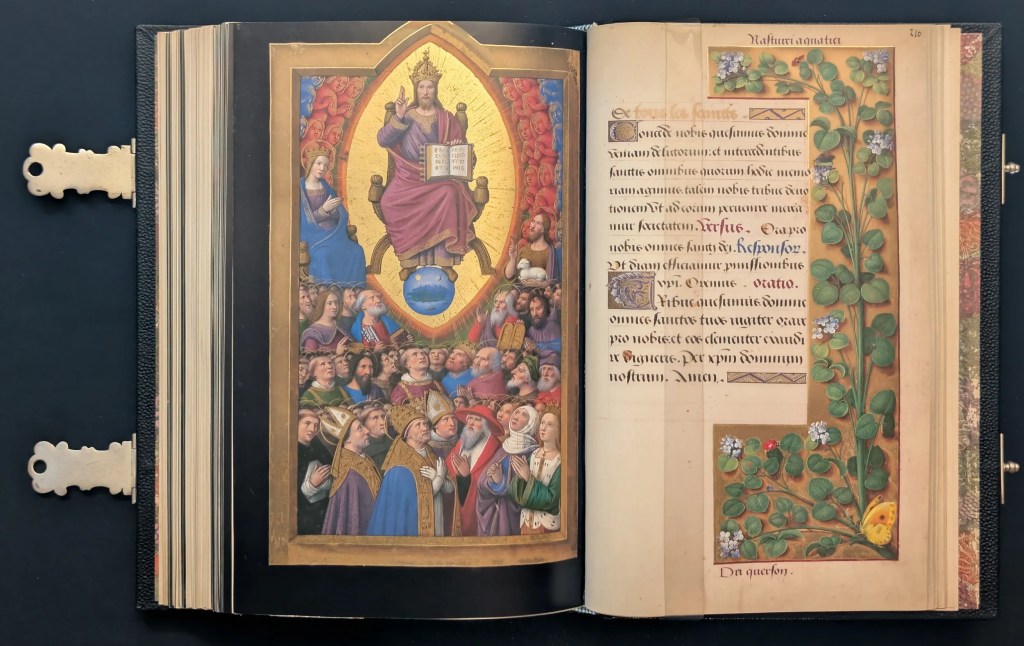 Nasturci aquatici
210
De tous les sainctz
Concede nobis quesumus domine
veniam delictorum: et intercedentibus
sanctis omnibus quorum hodie memo
riam agimus. talem nobis tribue devo
tionem Ut ad eorum pervenire merea
mur societatem. Versus. Ora pro
nobis omnes sancti dei. Responsor.
Ut digni efficiamur promissionibus
xpi. Oremus. oratio.
Tribue quesumus domine
omnes sanctos tuos iugiter orare
pro nobis et eos clementer exaudi
re digneris. Per xpm dominum
nostrum. Amen.
Du querson.